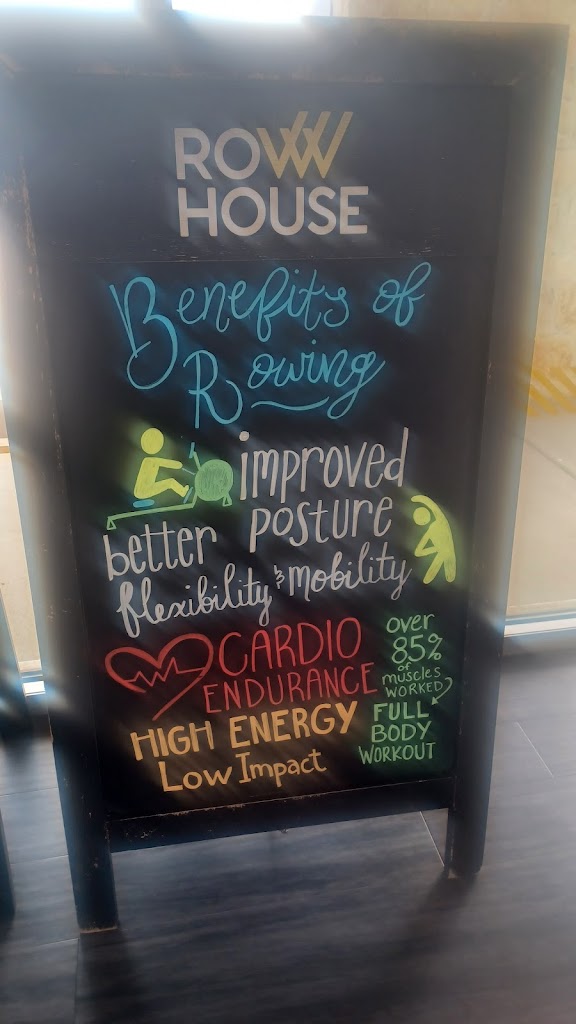 ROW
HOUSE
Benefits of
Rowing
improved
posture
better
flexibility & mobility
CARDIO
ENDURANCE
over
85%
of
muscles
WORKED
FULL
BODY
WORKOUT
HIGH ENERGY
Low Impact